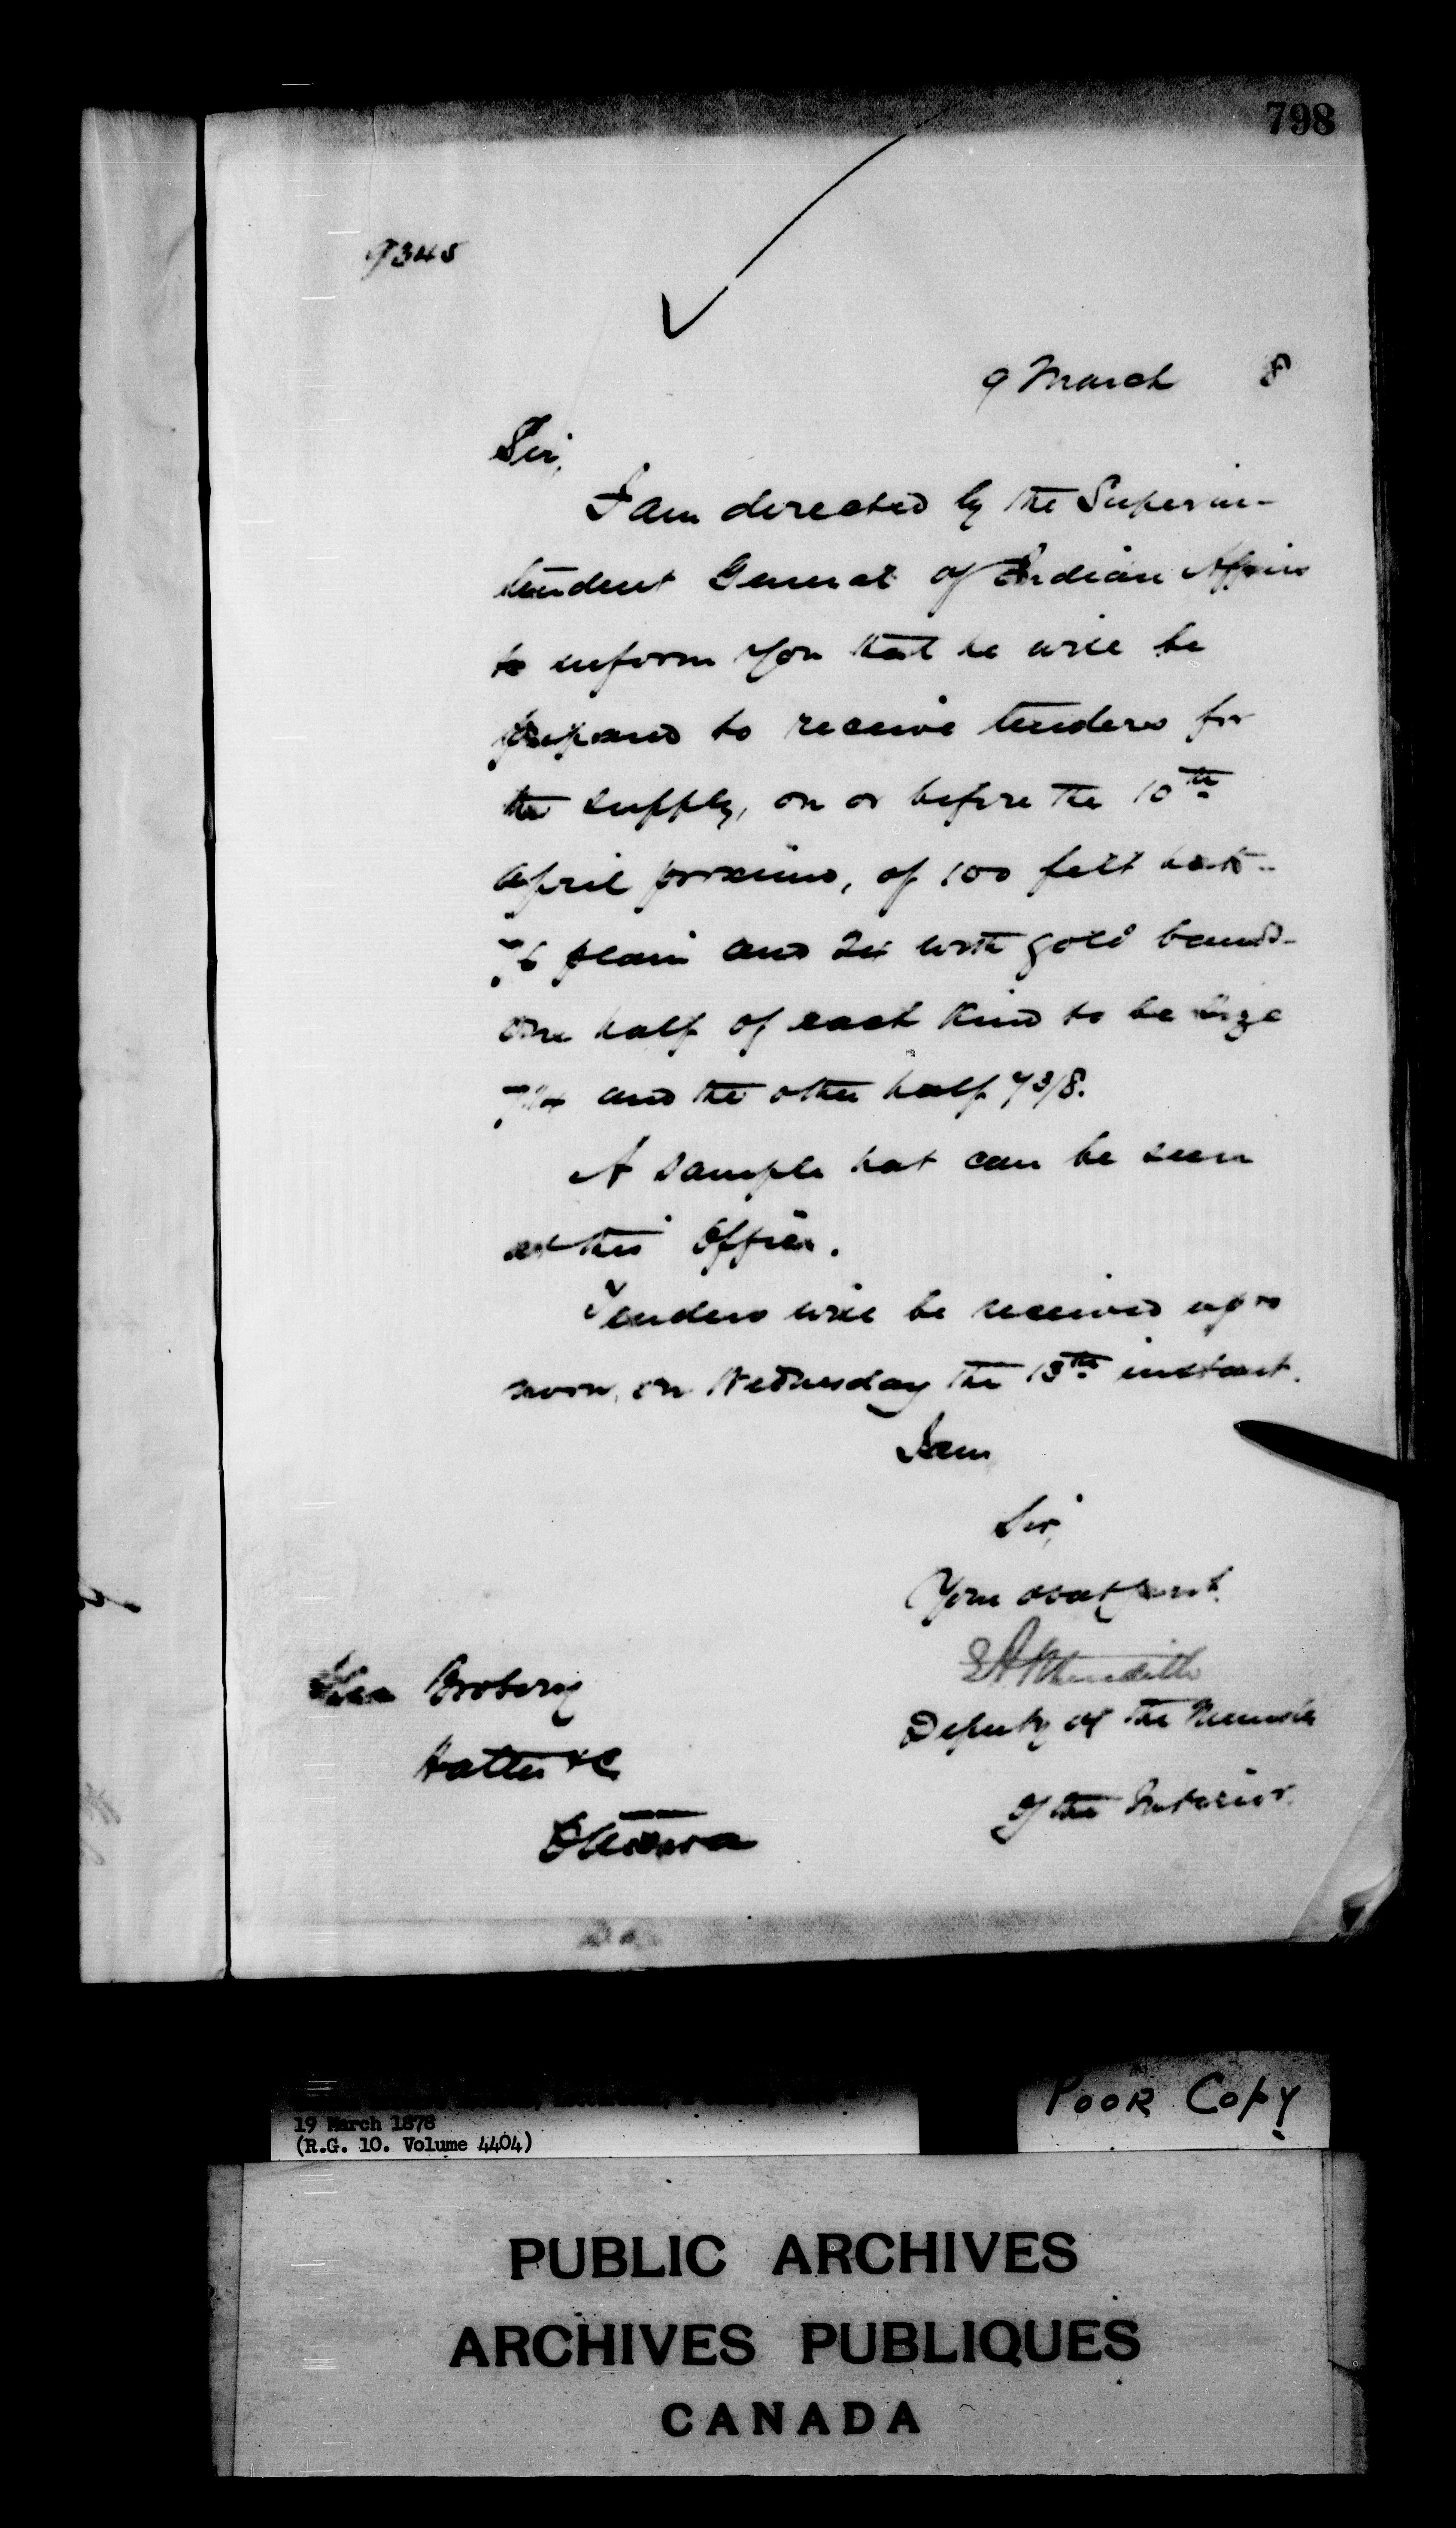 798
9345
9 March 8
Sir,
I am directed by the Superin-
tendent General of Indian Affairs
to inform you that he will be
prepared to receive tenders for
the supply, on or before the 10th
April proximo, of 100 felt hats -
76 plain and 24 with gold bands -
one half of each kind to be size
7 1/4 and the other half 7 3/8.
A sample hat can be seen
at this Office.
Tenders will be received up to
noon, on Wednesday the 13th instant.
I am
Sir,
Your obdt Servt.
E A Meredith
Deputy of the Minister
of the Interior.
Hatter &c
Ottawa
19 March 1878
(R.G. 10. Volume 4404)
POOR COPY
PUBLIC ARCHIVES
ARCHIVES PUBLIQUES
CANADA